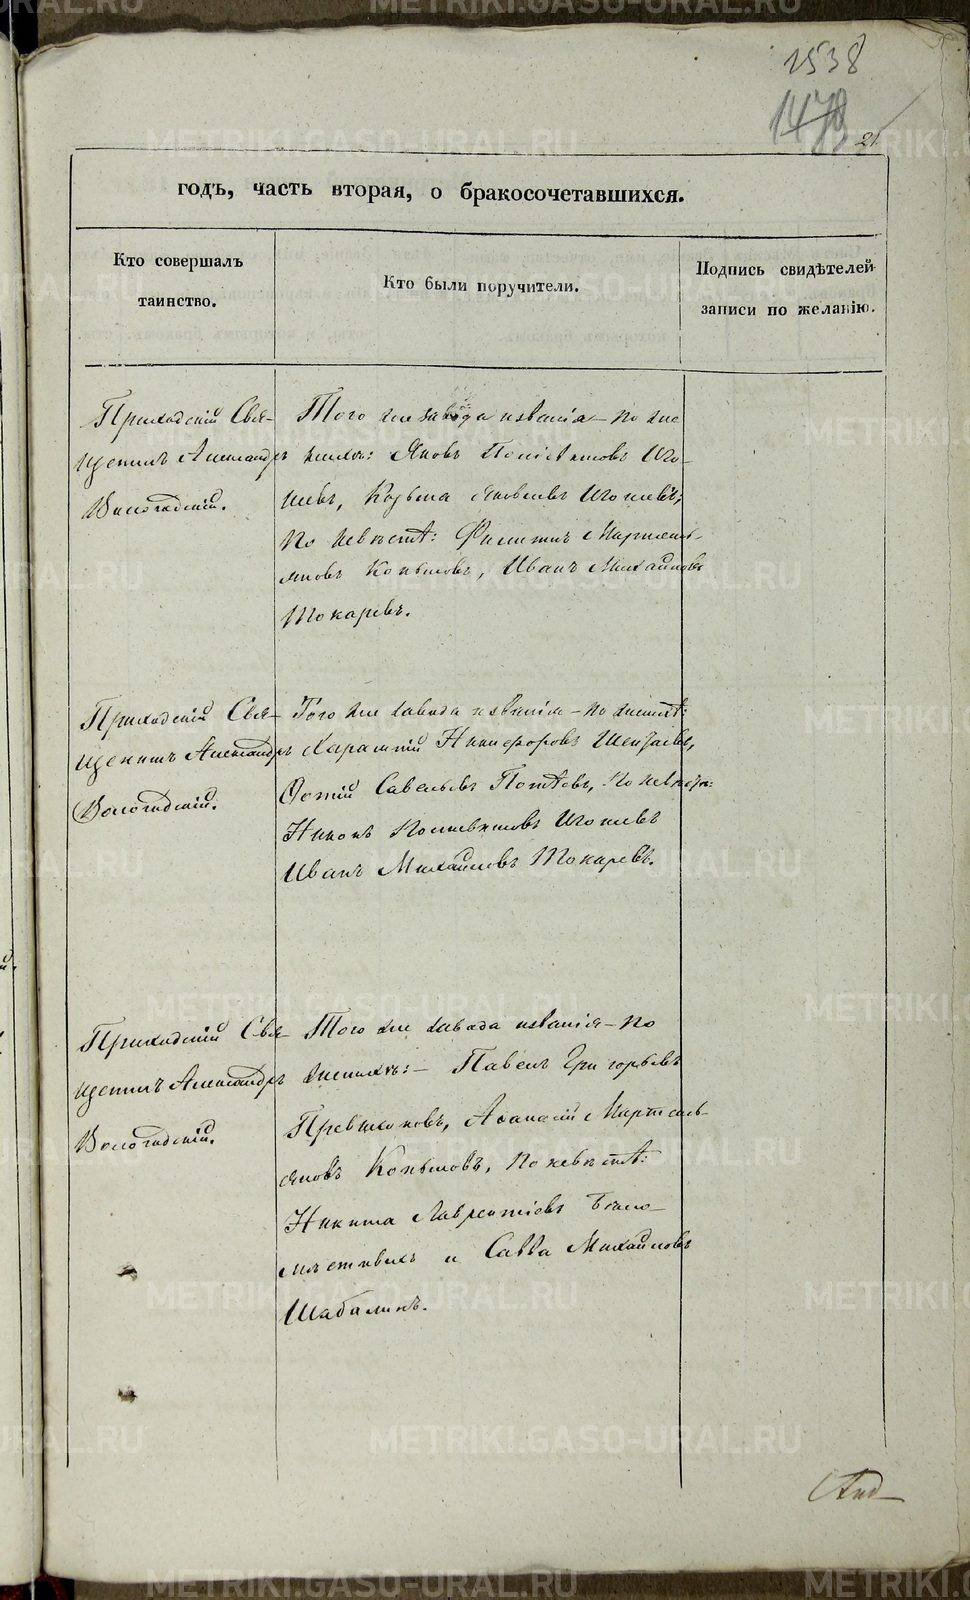 1538
1479
21
годъ, часть вторая, о бракосочетавшихся.
Кто совершалъ
таинство.
Кто были поручители.
Подпись свидѣтелей
записи по желанію.
Приходскій Свя-
щенникъ Александръ
Вологодскій.
Того же завода званія – по же
нихѣ: Яковъ
Козьма Яковлевъ
по невѣстѣ: Филиппъ Мартемь-
яновъ Копыловъ, Иванъ Михайловъ
Токаревъ.
Приходскій Свя-
щенникъ Александръ
Вологодскій.
Того же завода званія – по женихѣ:
Харлампій Никифоровъ
Фотій Савельевъ по невѣстѣ:
Никонъ
Иванъ Михайловъ Токаревъ.
Приходскій Свя-
щенникъ Александръ
Вологодскій.
Того же завода званія – по
женихѣ: – Павелъ Григорьевъ
Аѳанасій Мартемь-
яновъ Копыловъ, по невѣстѣ:
Никита Лаврентіевъ
и Савва Михайловъ
Шабалинъ.
METRIKI.GASO-URAL.RU